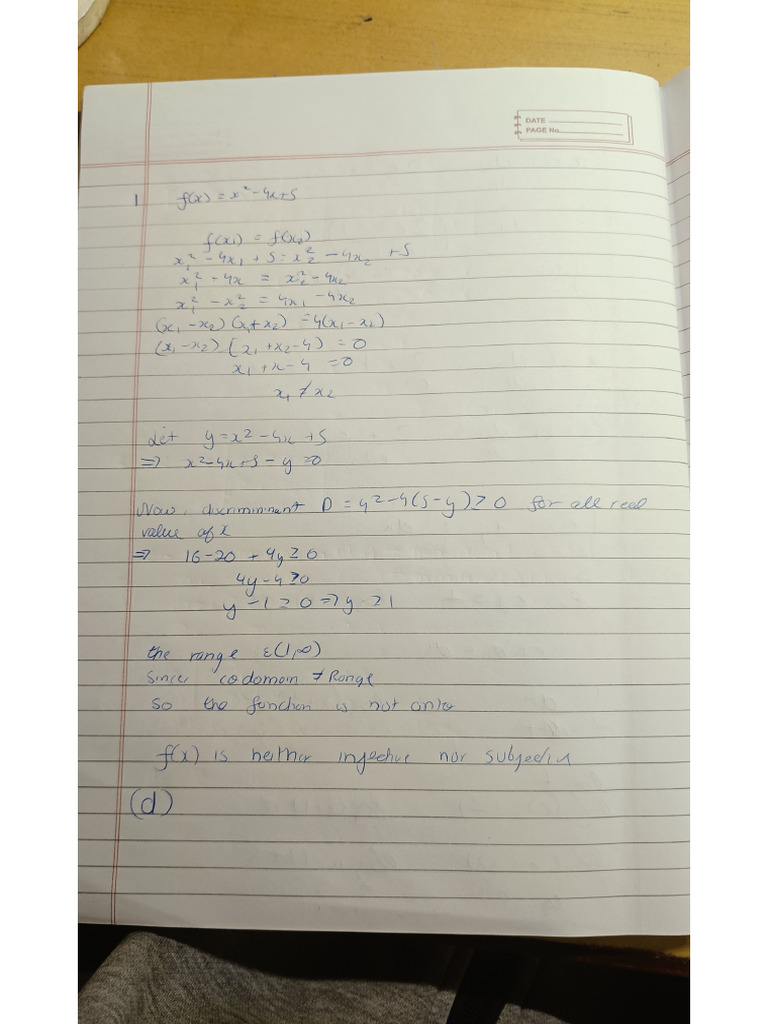 DATE
PAGE No.
1 f(x) = x² - 4x + 5
f(x₁) = f(x₂)
x₁² - 4x₁ + 5 = x₂² - 4x₂ + 5
x₁² - 4x = x₂² - 4x₂
x₁² - x₂² = 4x₁ - 4x₂
(x₁ - x₂) (x₁ + x₂) = 4(x₁ - x₂)
(x₁ - x₂) [x₁ + x₂ - 4) = 0
x₁ + x - 4 = 0
x₁ ≠ x₂
Let y = x² - 4x + 5
⇒ x² - 4x + 5 - y = 0
Now, discriminant D = 4² - 4(5 - y) ≥ 0 for all real
value of x
⇒ 16 - 20 + 4y ≥ 0
4y - 4 ≥ 0
y - 1 ≥ 0 ⇒ y ≥ 1
the range ε(1, ∞)
Since codomain ≠ Range
So the function is not onto
f(x) is neither injective nor subjective
(d)